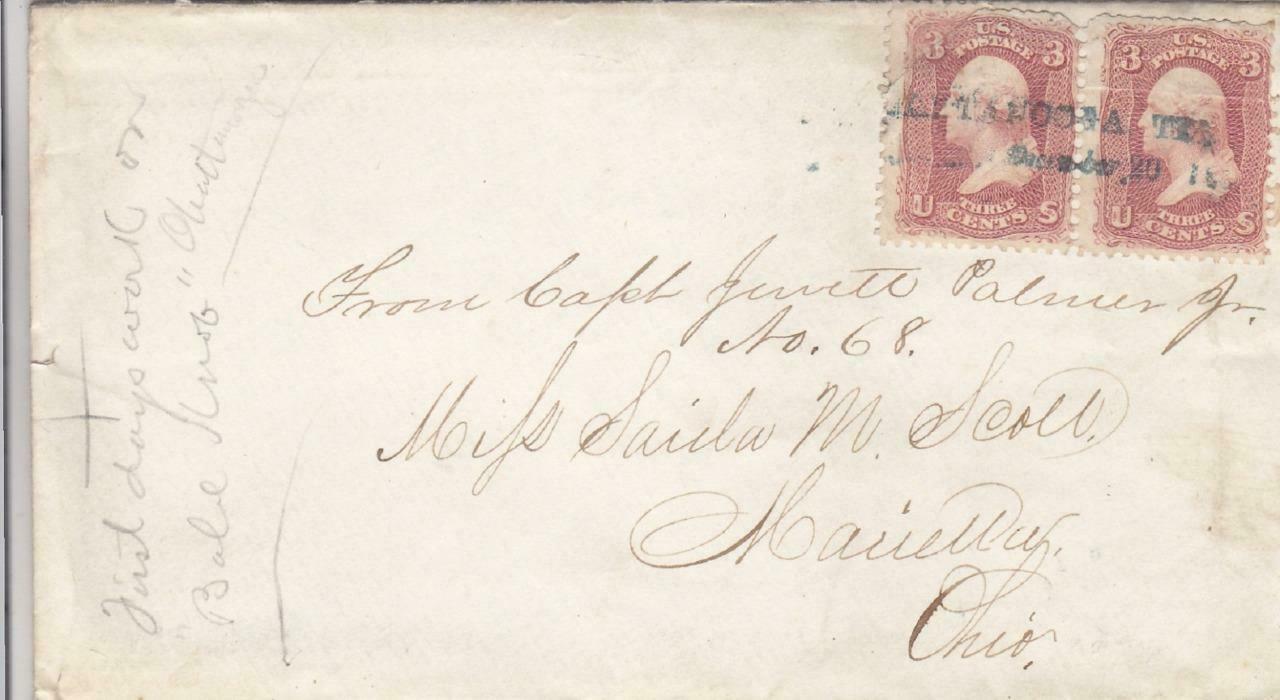 3 U.S. POSTAGE 3
U THREE CENTS S
3 U.S. POSTAGE 3
U THREE CENTS S
TEN
20
From Capt Jewett Palmer Jr.
No. 68.
Miss Saida M. Scott.
Marietta,
Ohio.
First days work on
"Bald Knob" Chattanooga